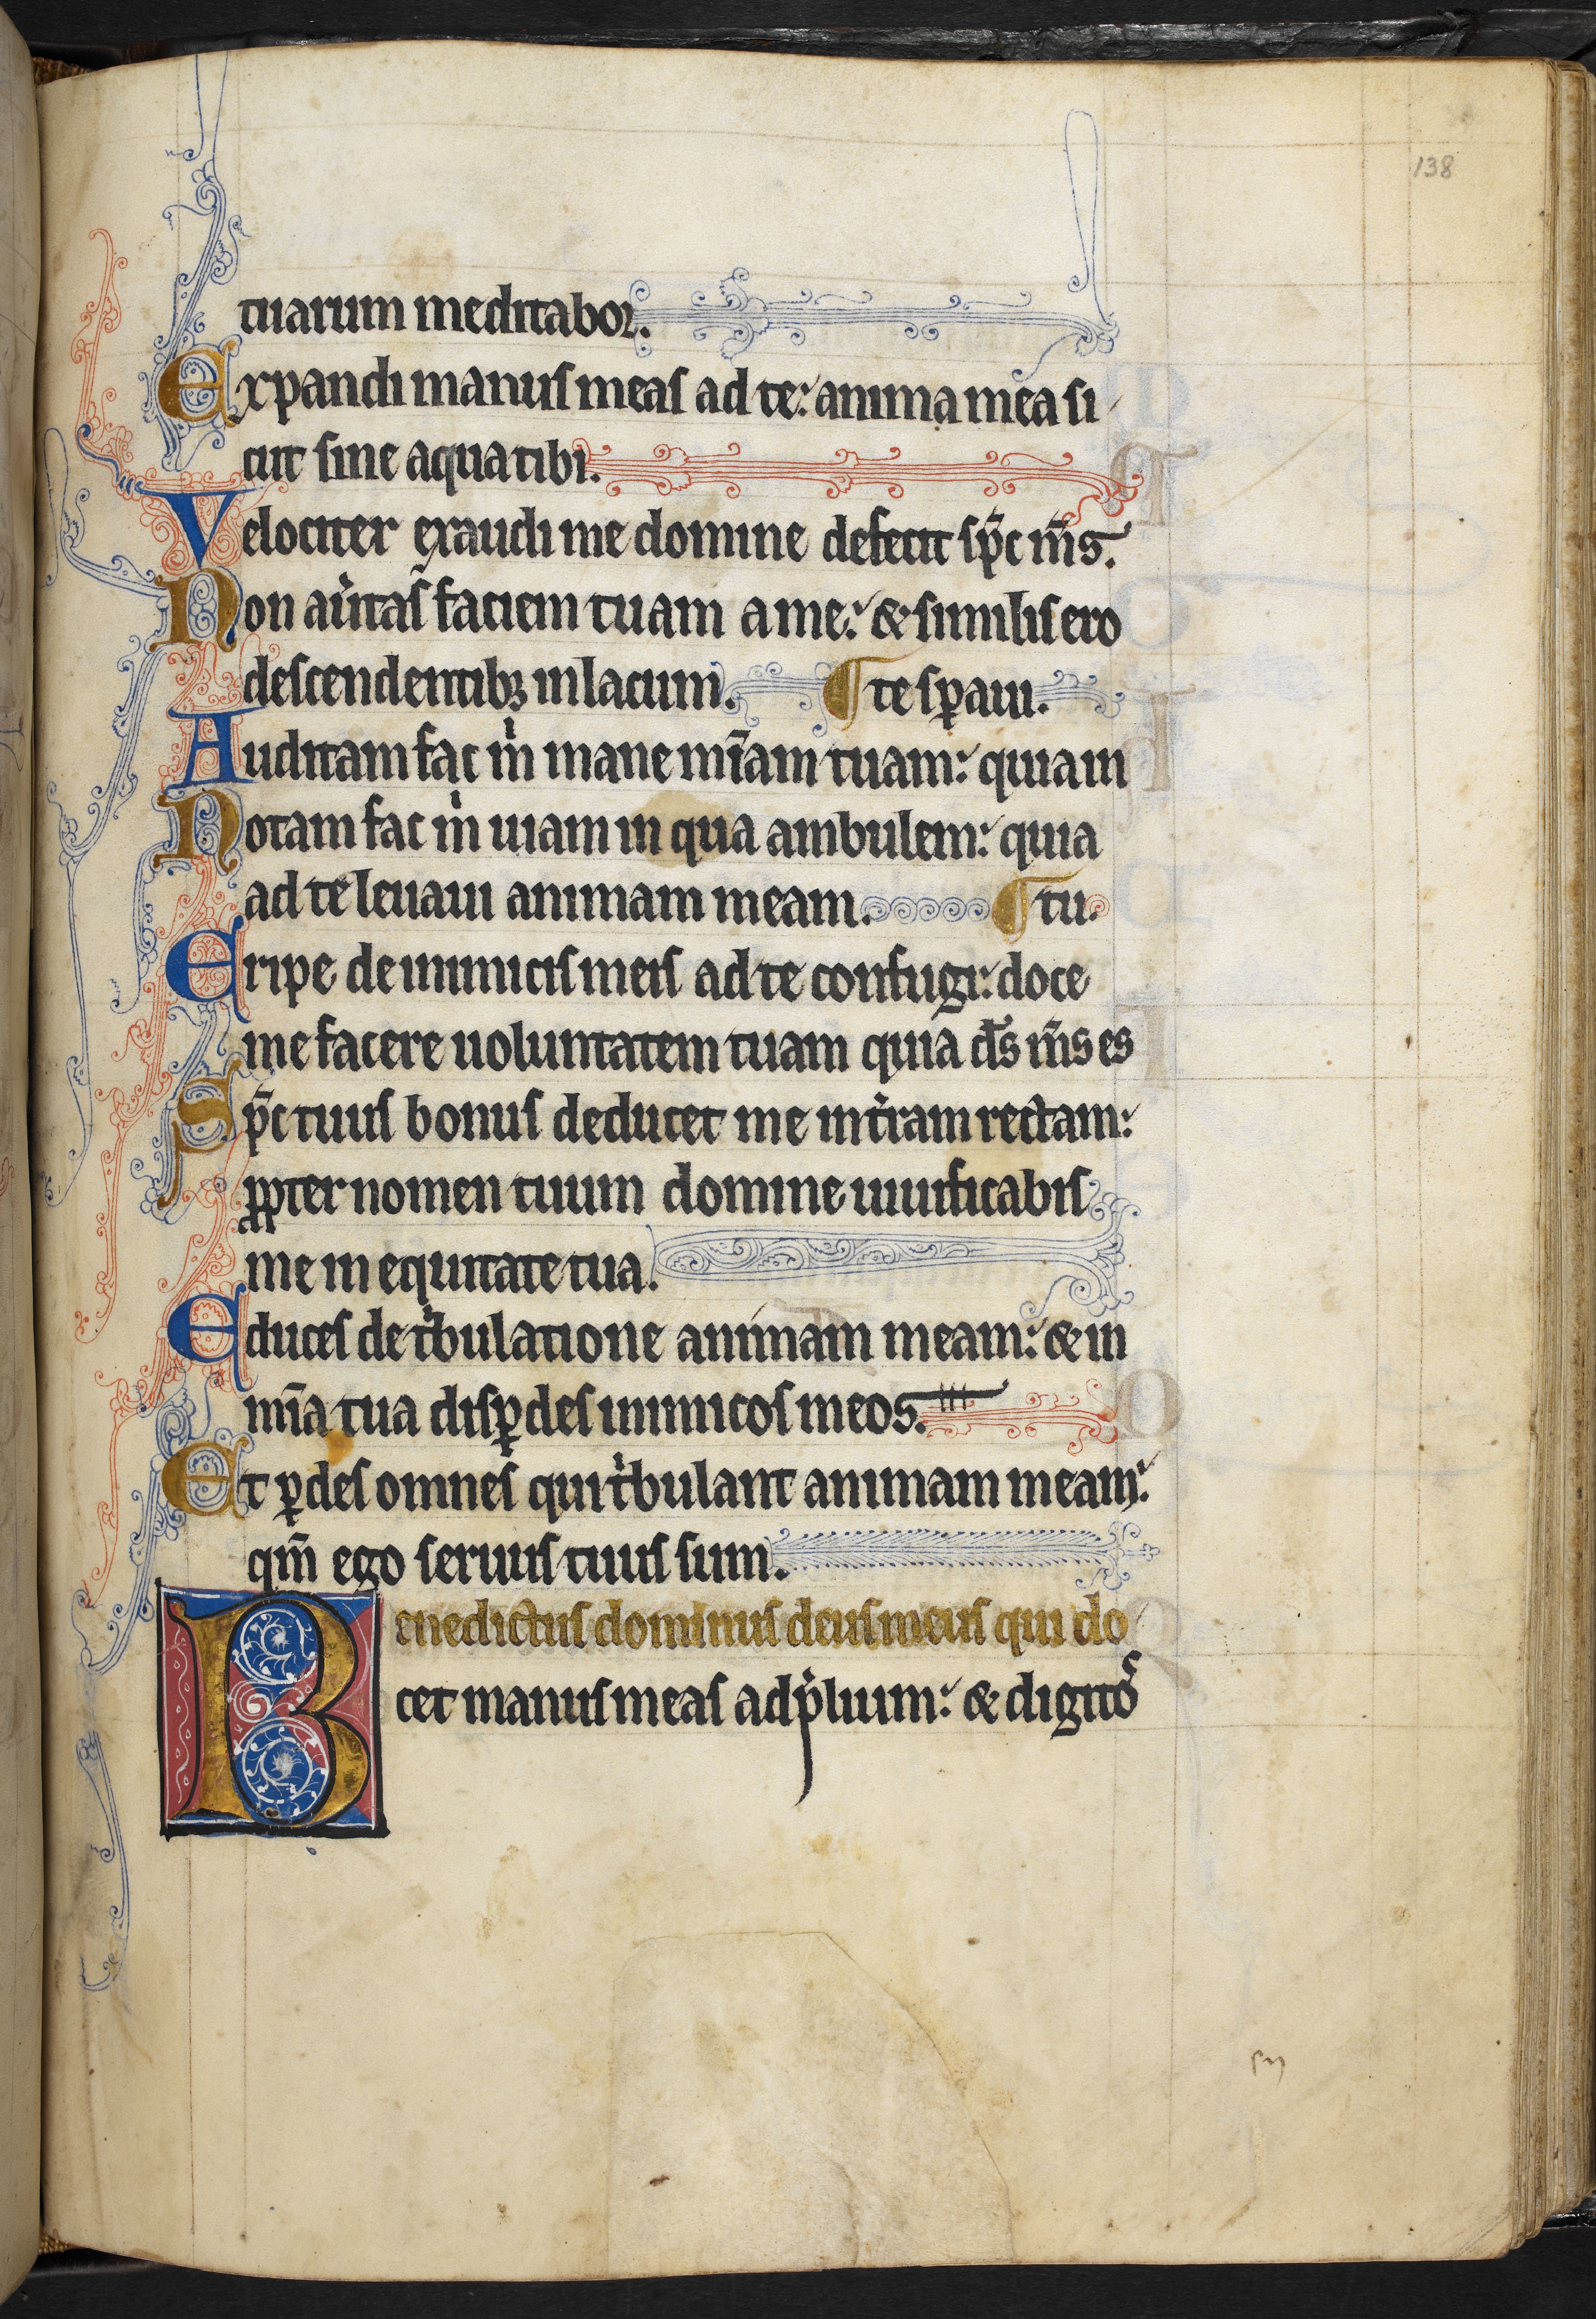 138
tuarum meditabor.
Expandi manus meas ad te: anima mea si
cut sine aqua tibi.
Velociter exaudi me domine defecit sp̄c m̄s.
Non auͥtas faciem tuam a me: & similis ero
descendentibꝫ in lacum. ¶ te sꝑaui.
Auditam fac m̍ mane mīam tuam: quia in
Notam fac m̍ uiam in qua ambulem: quia
ad te leuaui animam meam. ¶ tu.
Eripe de inimicis meis ad te confugi: doce
me facere uoluntatem tuam quia d̄s m̄s es
Sp̄c tuus bonus deducet me in t̍ram rectam:
ꝓpter nomen tuum domine uiuificabis
me in equitate tua.
Educes de tͥbulatione animam meam: & in
mīa tua disꝑdes inimicos meos.
Et ꝑdes omnes qui tͥbulant animam meam:
qm̄ ego seruus tuus sum.
Benedictus dominus deus meus qui do
cet manus meas ad p̍lium: & digitoˢ